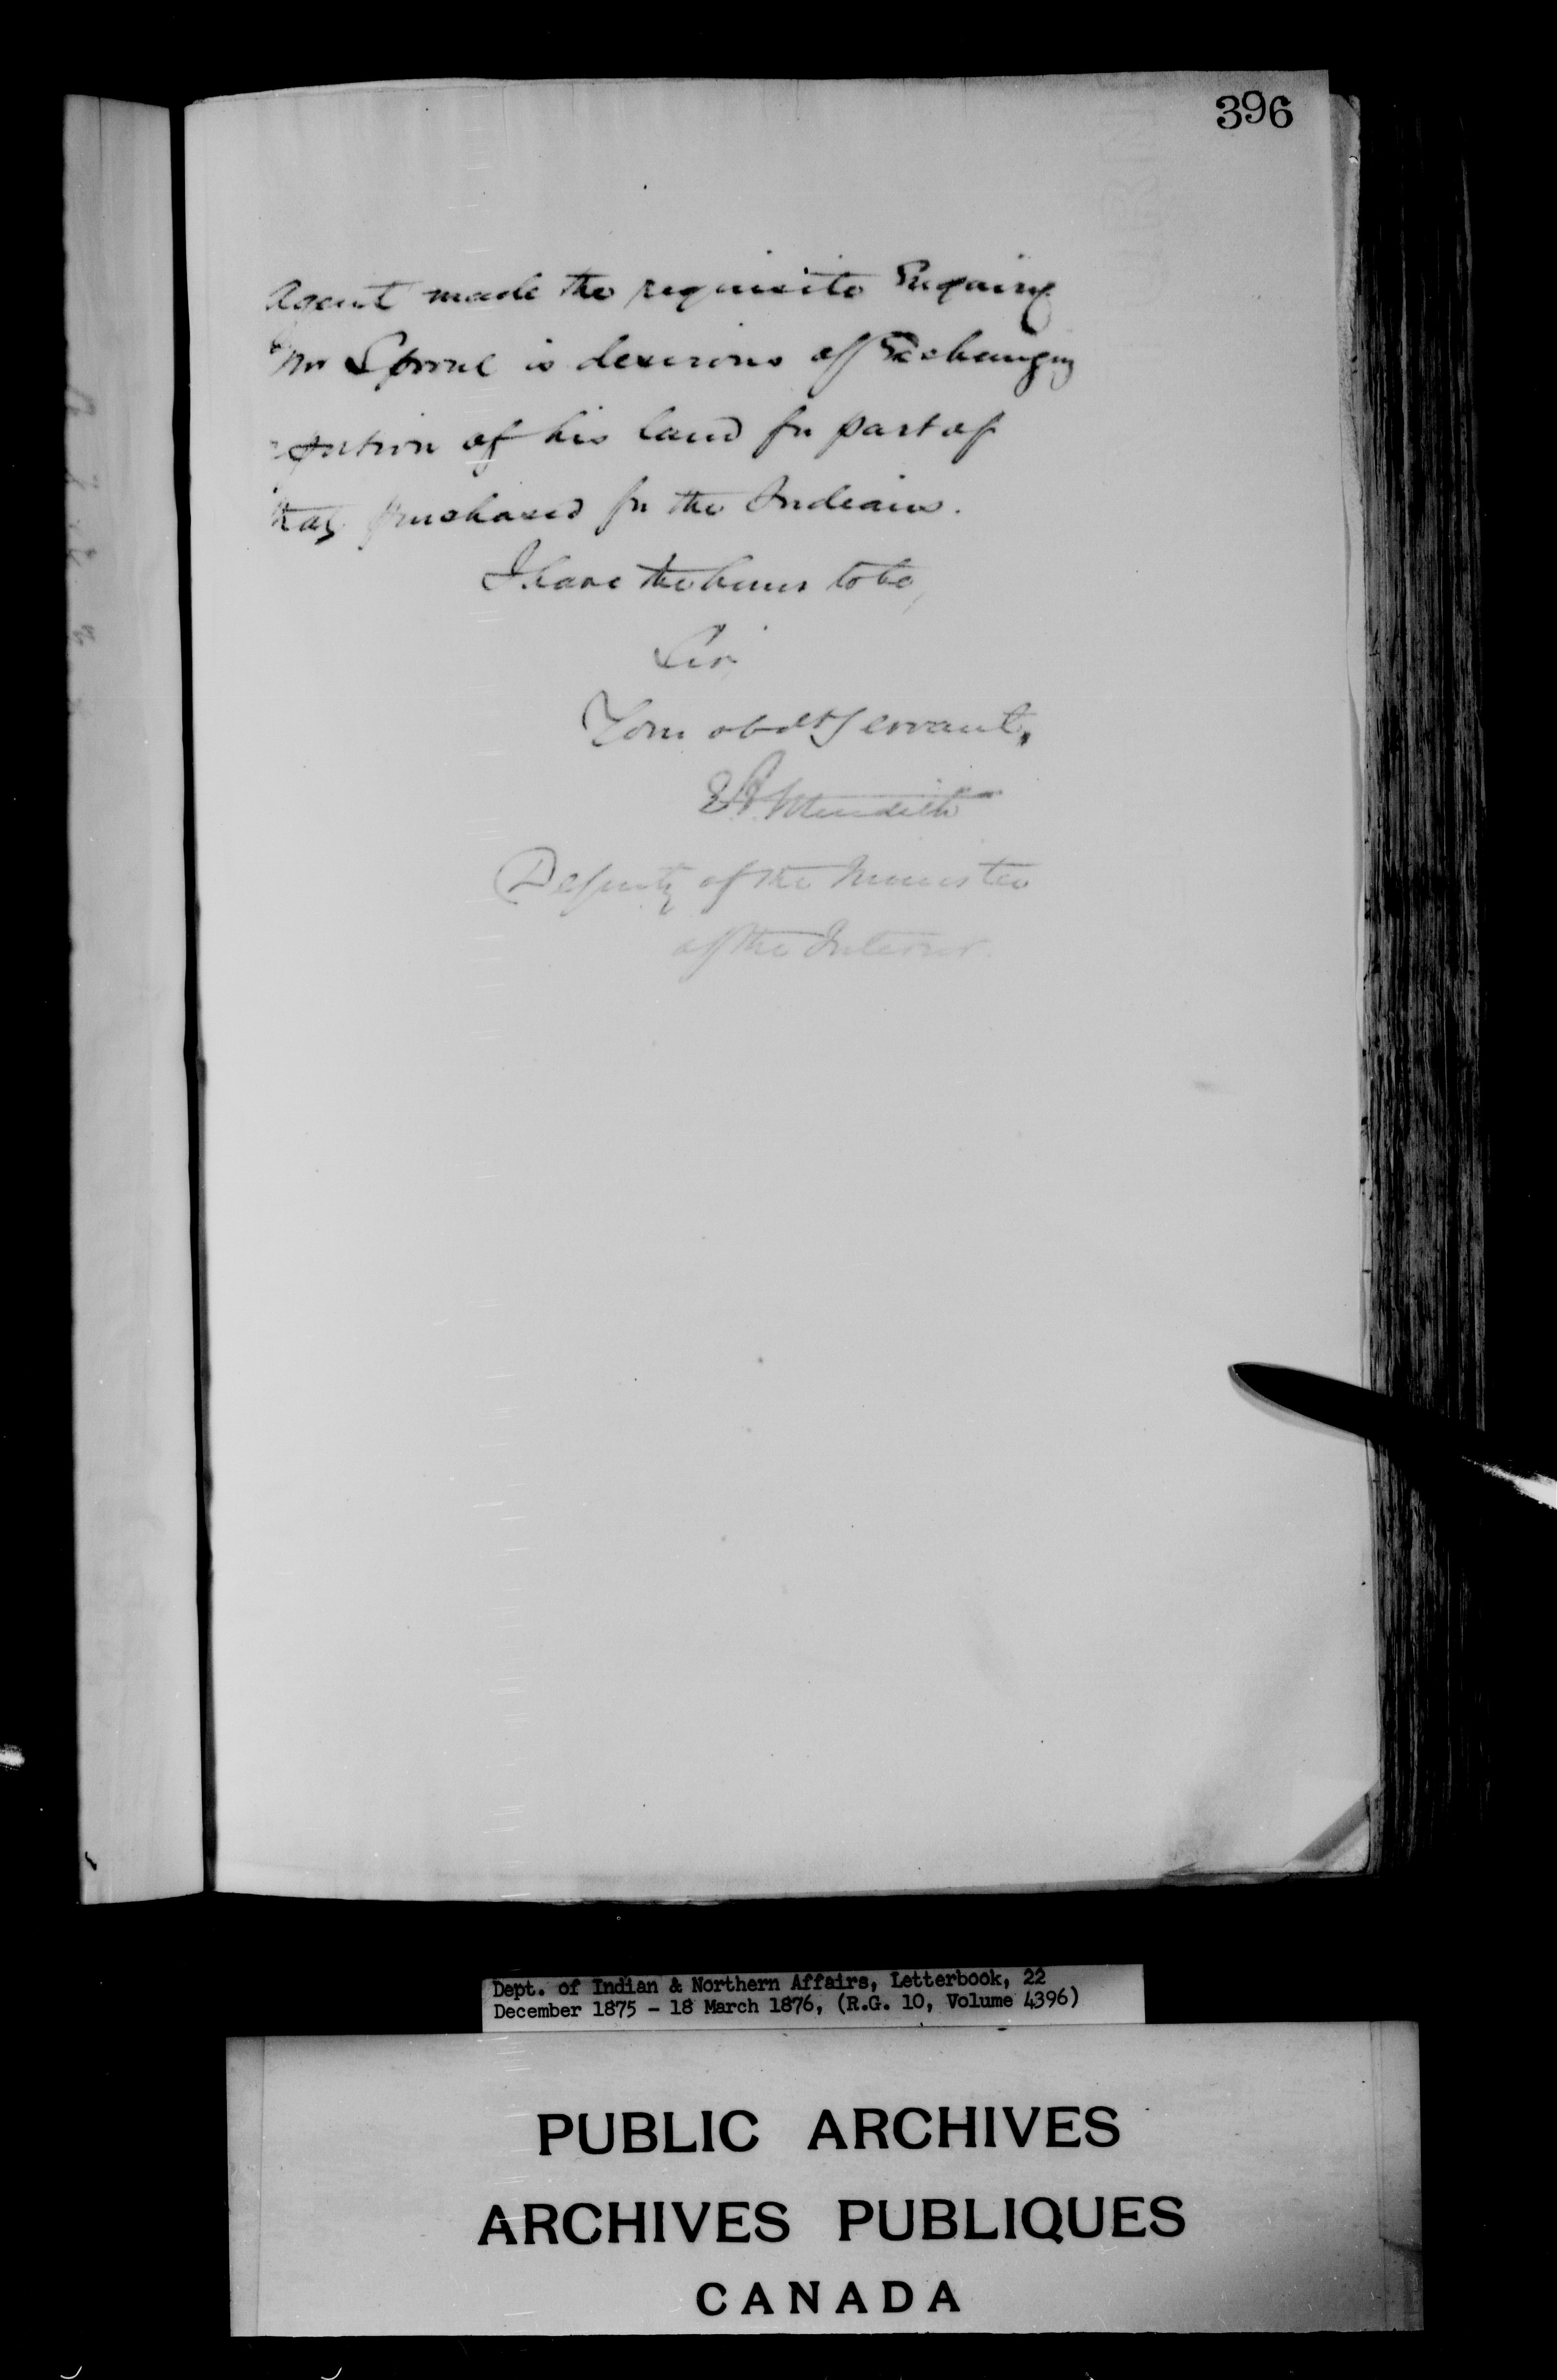 396
Agent made the requisite Enquiry
Mr Sproul is desirous of Exchanging
a portion of his land for part of
that purchased for the Indians.
I have the honor to be,
Sir,
Your obedt Servant,
E A Meredith
Deputy of the Minister
of the Interior.
Dept. of Indian & Northern Affairs, Letterbook, 22
December 1875 - 18 March 1876, (R.G. 10, Volume 4396)
PUBLIC ARCHIVES
ARCHIVES PUBLIQUES
CANADA